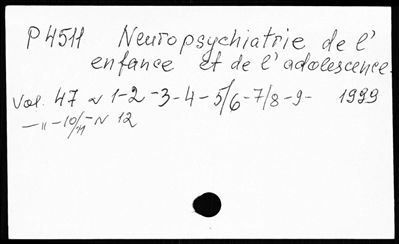 P4511 Neuropsychiatrie de l'
enfance et de l'adolescence.
Vol. 47 N 1-2-3-4-5/6-7/8-9- 1999
—"—10/11—N 12